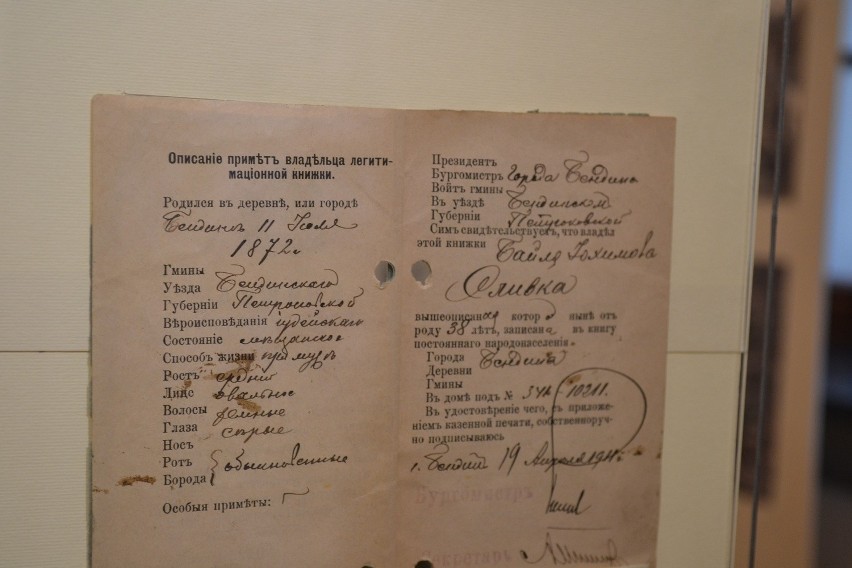 Описаніе примѣтъ владѣльца легити-
маціонной книжки.
Родился въ деревнѣ, или городѣ
Бендинѣ 11 Іюля
1872 г.
Гмины
Уѣзда Бендинскаго
Губерніи Петроковской
Вѣроисповѣданія іудейскаго
Состояніе мѣщанское
Способъ жизни при мужѣ
Ростъ средній
Лице овальное
Волосы темные
Глаза сѣрые
Носъ
Ротъ обыкновенные
Борода
Особыя примѣты:
Президентъ
Бургомистръ города Бендина
Войтъ гмины
Въ уѣздѣ Бендинскомъ
Губерніи Петроковской
Симъ свидѣтельствуетъ, что владѣл
этой книжки Байля Іохимова
Сливка
вышеописанная котор нынѣ отъ
роду 38 лѣтъ, записана въ книгу
постояннаго народонаселенія
Города Бендина
Деревни
Гмины
Въ домѣ подъ № 10211.
Въ удостовѣреніе чего, съ приложе-
ніемъ казенной печати, собственноруч-
но подписываюсь
г. Бендинъ 19 Апрѣля 1911 г.
Бургомистръ
Секретарь